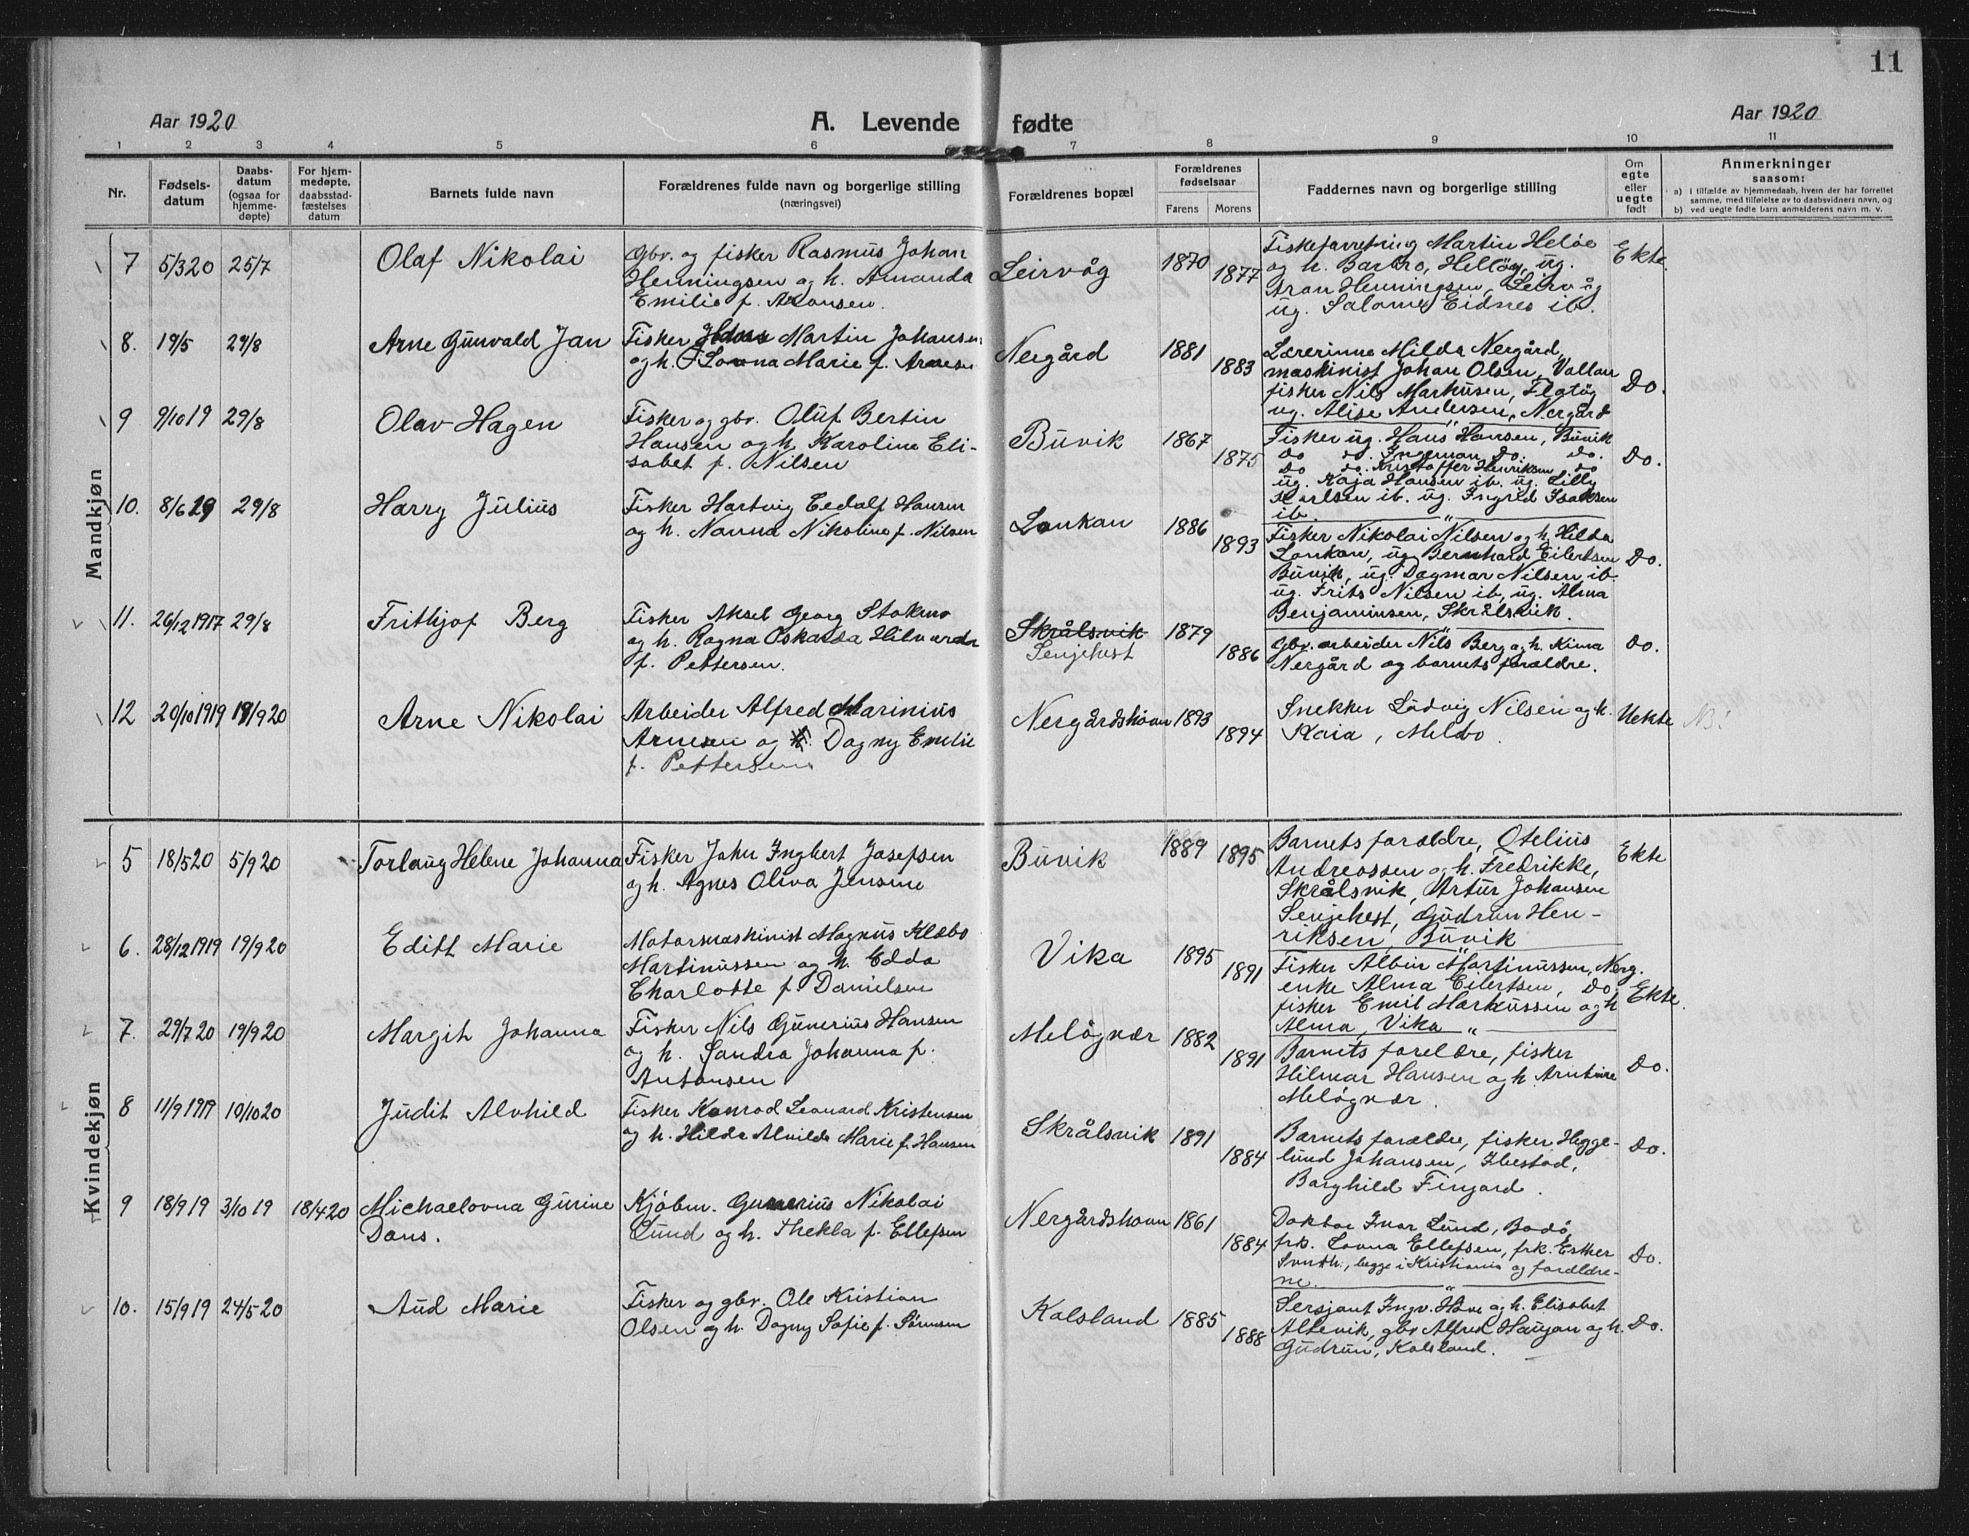 11
Aar 1920
A. Levende fødte
Aar 1920
1 2 3 4 5 6 7 8 9 10 11
Nr.
Fødsels-
datum
Daabs-
datum
(ogsaa for
hjemme-
døpte)
For hjem-
medøpte,
daabsstad-
fæstelses
datum
Barnets fulde navn
Forældrenes fulde navn og borgerlige stilling
(næringsvei)
Forældrenes bopæl
Forældrenes
fødselsaar
Farens Morens
Faddernes navn og borgerlige stilling
Om
egte
eller
uegte
født
Anmerkninger
saasom:
a) i tilfælde av hjemmedaab, hvem der har forrettet
samme, med tilføielse av to daabsvidners navn, og
b) ved uegte fødte barn anmelderens navn m. v.
Mandkjøn
7 5/3 20 25/7 Olaf Nikolai
Gbr. og fisker Rasmus Johan
Henningsen og h. Amanda
Emilie f. Aronsen.
Leirvåg 1870 1877
Fiskeforretning Martin Heløe
og h. Barbro, Helløy, ug.
Aron Henningsen, Leirvåg
ug. Salome Eidnes ib.
Ekte
8. 19/5 29/8 Arne Gunvald Jan
Fisker Martin Johansen
og h. Lovna Marie f. Arnesen
Nergård 1881 1883
Lærerinne Milda Nergård,
maskinist Johan Olsen, Vollan
fisker Nils Markusen, Flatøy
ug. Alise Andersen, Nergård
Do.
9 9/10 19 29/8 Olav Hagen
Fisker og gbr. Oluf Bertin
Hansen og h. Karoline Eli-
sabet f. Nilsen
Buvik 1867 1875
Fisker ug. Hans Hansen, Buvik
do do. Ingeman do. do.
do do. Kristoffer Henriksen do
ug. Kaja Hansen ib. ug. Lilly
Karlsen ib. ug. Ingrid Isaksen
ib.
Do.
10. 8/6 19 29/8 Harry Julius
Fisker Hartvig Hansen
og h. Nanna Nikoline f. Nilsen
Lonkan 1886 1893
Fisker Nikolai Nilsen og h. Hilda
Lonkan, ug Bernhard Eilertsen
Buvik, ug. Dagmar Nilsen ib.
ug. Frits Nilsen ib, ug. Alma
Benjaminsen, Skrålsvik.
Do.
11. 26/12 1917 29/8 Frithjof Berg
Fisker Aksel Georg Stokmo
og h. Ragna Oskarda Hilvarda
f. Pettersen.
Skrålsvik
Senjehest
1879 1886
Gbr. arbeider Nils Berg og h. Kima
Nergård og barnets forældre.
Do.
12 20/10 1919 19/9 20 Arne Nikolai
Arbeider Alfred Marinius
Arnesen og h. Dagny Emelie
f. Pettersen
Nergårdshavn 1893 1894
Snekker Ludvig Nilsen og h.
Kaia, Melbo.
Uekte
Kvindekjøn
5 18/5 20 5/9 20 Torlaug Helene Johanna
Fisker John Ingbert Josefsen
og h. Agnes Oliva Jensine
Buvik 1889 1895
Barnets forældre, Otelius
Andreassen og h. Fredrikke,
Skrålsvik, Artur Johansen
Senjehest, Gudrun Hen-
riksen, Buvik
Ekte
6. 28/12 1919 19/9 20 Edith Marie
Motormaskinist Magnus Klæbo
Martinussen og h. Edda
Charlotte f. Danielsen
Vika 1895 1891
Fisker Albin Martinussen, Nerg.
enke Alma Eilertsen, Do.
fisker Emil Markussen og h
Alma, Vika
Ekte.
7. 29/7 20 19/9 20 Margit Johanna
Fisker Nils Gunerius Hansen
og h. Sandra Johanna f.
Antonsen
Meløyvær 1882 1891
Barnets forældre, fisker
Hilmar Hansen og h. Arntine
Meløyvær.
Do.
8 11/9 1919 10/10 20 Judit Alvhild
Fisker Konrad Leonard Kristensen
og h. Hilda Alvilda Marie f. Hansen
Skrålsvik 1891 1884
Barnets forældre, fisker Hegge-
lund Johansen, Ibestad,
Borghild Finjord.
Do.
9 18/9 19 3/10 19 18/4 20 Michaelovna Gurine
Dons.
Kjøbm. Gunerius Nikolai
Lund og h. Thekla f. Ellefsen
Nergårdshavn 1861 1884
Doktor Ivar Lund, Bodø,
frk. Lovna Ellefsen, frk. Esther
begge i Kristiania og forældre-
ne.
Do.
10. 15/9 19 24/5 20 Aud Marie
Fisker og gbr. Ole Kristian
Olsen og h. Dagny Sofie f. Sørensen
Kalsland 1885 1888
Sersjant Ingv. Hove og h. Elisabet
Altevik, gbr Alfred Haugan og h.
Gudrun, Kalsland.
Do.